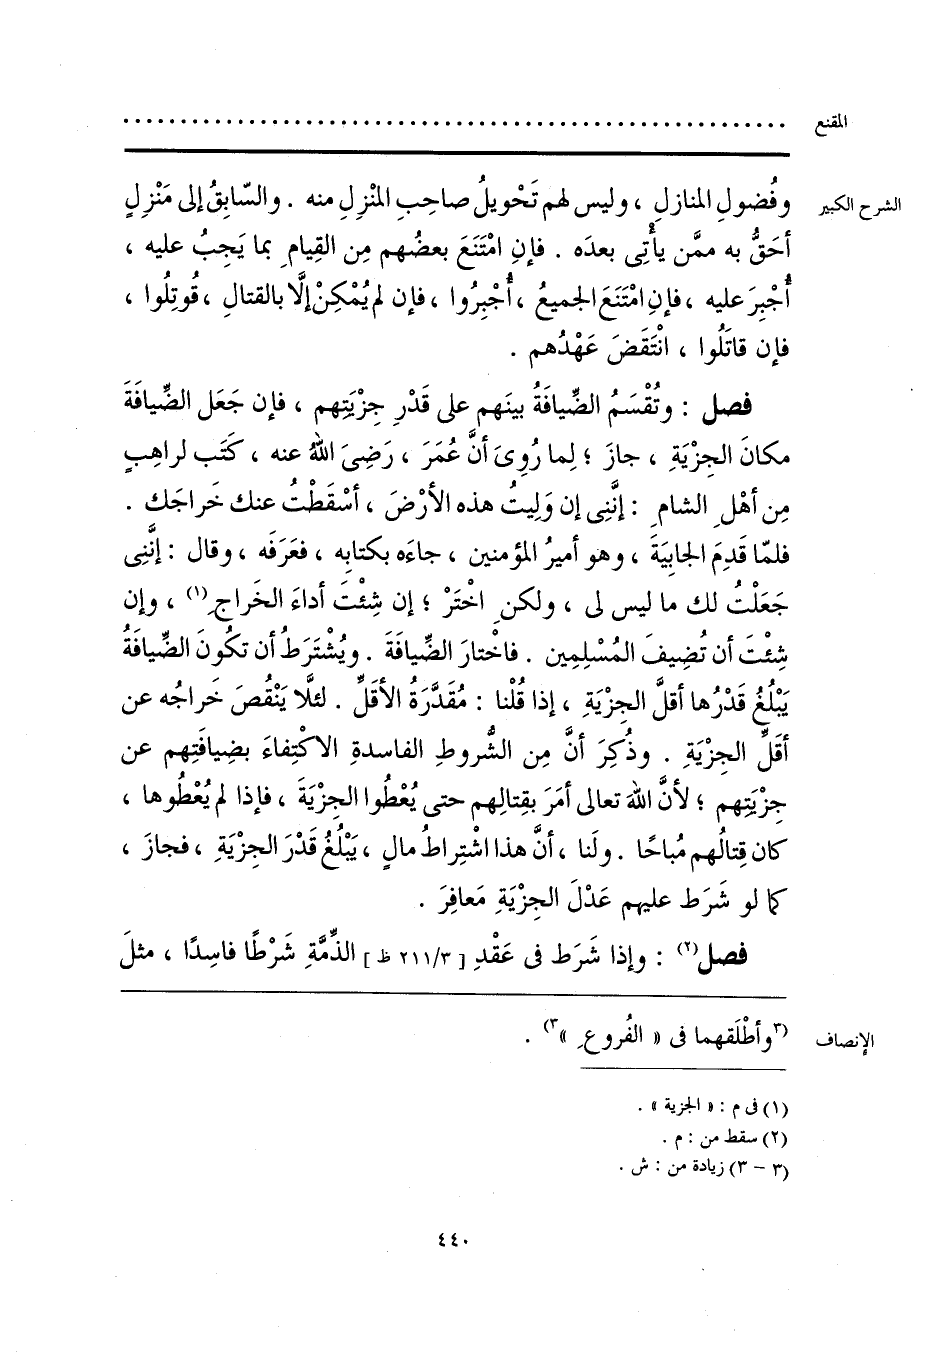 المقنع ............................................................
الشرح الكبير وفُضولِ المنازلِ ، وليس لهم تَحْويلُ صاحِبِ المَنْزِلِ منه . والسّابِقُ إلى مَنْزِلٍ
أحَقُّ به ممَّن يأْتِى بعدَه . فإنِ امْتَنَعَ بعضُهم مِن القِيامِ بما يَجِبُ عليه ،
أُجْبِرَ عليه ، فإنِ امْتَنَعَ الجميعُ ، أُجْبِرُوا ، فإن لم يُمْكِنْ إلَّا بالقتالِ ، قُوتِلُوا ،
فإن قاتَلُوا ، انْتَقَضَ عَهْدُهم .
فصل : وتُقْسَمُ الضِّيافَةُ بينَهم على قَدْرِ جِزْيَتِهم ، فإن جَعَل الضِّيافَةَ
مكانَ الجِزْيَةِ ، جازَ ؛ لِما رُوِىَ أنَّ عُمَرَ ، رَضِىَ اللهُ عنه ، كَتَب لراهِبٍ
مِن أهْلِ الشامِ : إنَّنِى إن وَلِيتُ هذه الأرْضَ ، أسْقَطْتُ عنك خَراجَك .
فلمّا قَدِمَ الجابِيَةَ ، وهو أميرُ المؤمنين ، جاءَه بكتابِه ، فعَرَفَه ، وقال : إنَّنِى
جَعَلْتُ لك ما ليس لى ، ولكنِ اخْتَرْ ؛ إن شِئْتَ أداءَ الخَراجِ(١) ، وإن
شِئْتَ أن تُضِيفَ المُسْلِمِين . فاخْتارَ الضِّيافَةَ . ويُشْتَرَطُ أن تكونَ الضِّيافَةُ
يَبْلُغُ قَدْرُها أقلَّ الجِزْيَةِ ، إذا قُلْنا : مُقَدَّرَةُ الأقَلِّ . لئلَّا يَنْقُصَ خَراجُه عن
أقَلِّ الجِزْيَةِ . وذُكِرَ أنَّ مِن الشُّروطِ الفاسدةِ الاكْتِفاءَ بضِيافَتِهم عن
جِزْيَتِهم ؛ لأنَّ اللهَ تعالى أمَرَ بقِتالِهم حتى يُعْطُوا الجِزْيَةَ ، فإذا لم يُعْطُوها ،
كان قِتالُهم مُباحًا . ولَنا ، أنَّ هذا اشْتِراطُ مالٍ ، يَبْلُغُ قَدْرَ الجِزْيَةِ ، فجازَ ،
كما لو شَرَط عليهم عَدْلَ الجِزْيَةِ مَعافِرَ .
فصل(٢) : وإذا شَرَط فى عَقْدِ [ ٢١١/٣ ظ ] الذِّمَّةِ شَرْطًا فاسِدًا ، مثلَ
الإنصاف (٣وأطْلَقهما فى « الفُروعِ »٣) .
(١) فى م : « الجزية » .
(٢) سقط من : م .
(٣ - ٣) زيادة من : ش .
٤٤٠